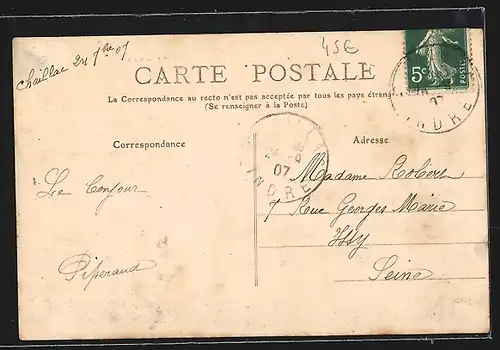 Chaillac 24 7bre 07
45€
5c POSTES
CARTE POSTALE
La Correspondance au recto n'est pas acceptée par tous les pays étrang
(Se renseigner à la Poste)
Correspondance
Adresse
07
INDRE
07
INDRE
Le bonjour
Madame Robert
7 Rue Georges Marie
Issy
Seine